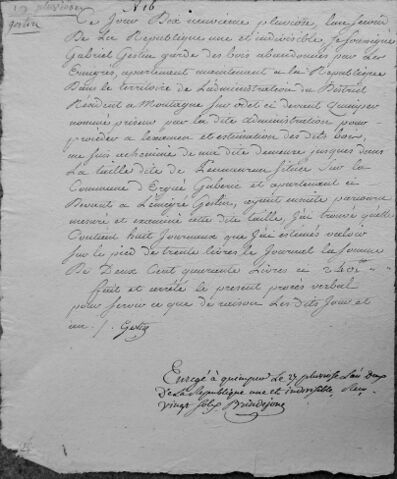 19 pluviose
gestin
N.o 16
Ce Jour Dix neuvieme pluviose, l'an second
De La Republique une et indivisible, Je soussigné
Gabriel Gestin garde des bois abandonnés par Les
Emigrés, apartenent maintenent a la Republique
Dans le territoire de L'administration du District
Résident a Montagne sur odet ci devant Quimper
nommé priseur par la dite administration pour
proceder a l'examen et estimation des dits bois,
me suis acheminé de ma dite demeure jusques dans
La taille dite de situee sur la
Commune D'Ergué Gaberic et apartenent ci
Devant a L'émigré Geslin, ayant ensuite parcouru
mesuré et examiné cette dite taille, J'ai trouvé qu'elle
Contient huit Journaux que J'ai estimés valoir
sur le pied de trente livres le Journal la somme
De Deux Cent quarante Livres ci 240
fait et arrêté le present procès verbal
pour servir ce que de raison Les dits Jour et
an ./. Gestin
Enregé à quimper Le 27 pluviose L'an deux
de La Republique une et indivisible, Reçu
vingt sols